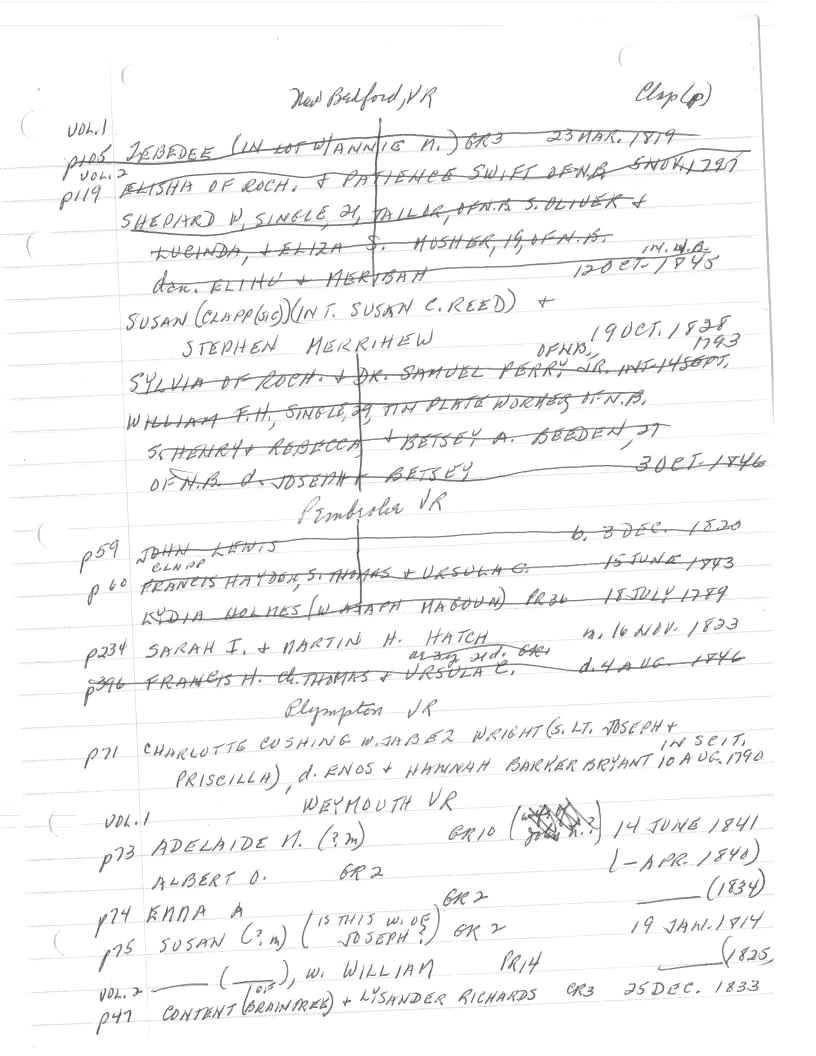 New Bedford, VR Clap(p)
VOL. 1
p105 ZEBEDEE (IN LOT W/ANNIE M.) GR3 23 MAR. 1819
VOL. 2
p119 ELISHA OF ROCH. & PATIENCE SWIFT OF N.B. 5 NOV. 1797
SHEPIARD W, SINGLE, 21, TAILOR, OF N.B. S. OLIVER &
LUCINDA, & ELIZA S. MOSHER, 19, OF N.B.
IN. N.B.
dau. ELIHU & MERIBAH 12 OCT. 1845
SUSAN (CLAPP(SIC)) (INT. SUSAN C. REED) &
STEPHEN MERRIHEW 19 OCT. 1828
OF N.B., 1793
SYLVIA OF ROCH. & DR. SAMUEL PERRY JR. INT. 14 SEPT,
WILLIAM F.H., SINGLE, 29, TIN PLATE WORKER, OF N.B.
S. HENRY & REBECCA, & BETSEY A. BEEDEN, 27
OF N.B. d. JOSEPH & BETSEY 3 OCT. 1846
Pembroke VR
p59 JOHN LEWIS b. 3 DEC. 1820
CLAPP
p60 FRANCIS HAYDEN, S. THOMAS & URSULA C. 15 JUNE 1843
LYDIA HOLMES (W ASAPH MAGOUN) PR36 18 JULY 1789
p234 SARAH I. & MARTIN H. HATCH m. 16 NOV. 1823
GR1
p396 FRANCIS H. ch. THOMAS & URSULA C. d. 4 AUG. 1846
Plympton VR
p71 CHARLOTTE CUSHING W. JABEZ WRIGHT (S. LT. JOSEPH &
IN SCIT.
PRISCILLA), d. ENOS & HANNAH BARKER BRYANT 10 AUG. 1790
WEYMOUTH VR
VOL. 1
p73 ADELAIDE M. (? m) GR10 14 JUNE 1841
ALBERT O. GR2 (-APR. 1840)
p74 EMMA A GR2 ____ (1834)
p75 SUSAN (? m) (IS THIS W. OF JOSEPH?) GR2 19 JAN. 1814
____ (____), W. WILLIAM PR14 ____ (1825,
VOL. 2
p47 CONTENT (BRAINTREE) & LYSANDER RICHARDS CR3 25 DEC. 1833